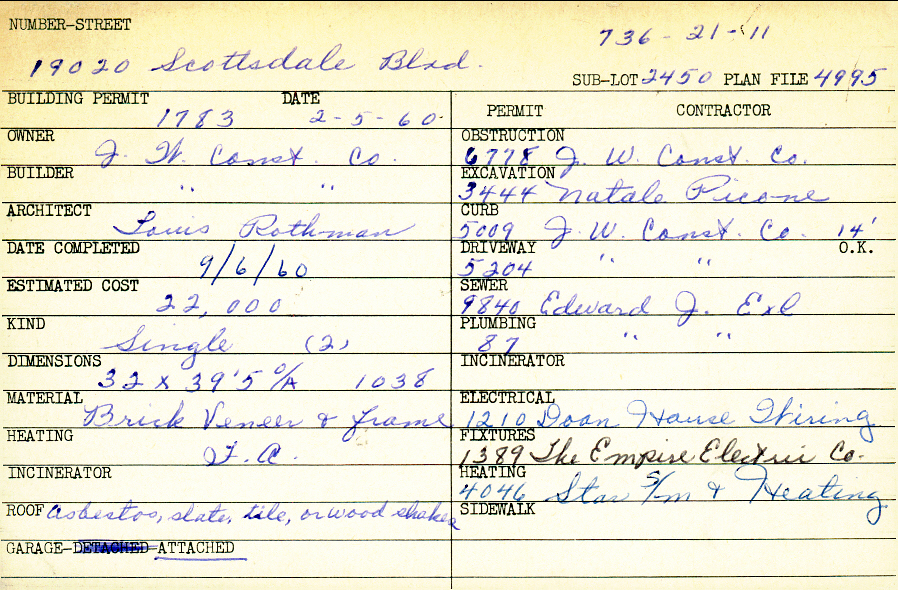 NUMBER-STREET
736-21-11
19020 Scottsdale Blvd.
SUB-LOT 2450 PLAN FILE 4995
BUILDING PERMIT DATE
1783 2-5-60
OWNER
J. W. Const. Co.
BUILDER
" "
ARCHITECT
Louis Rothman
DATE COMPLETED
9/6/60
ESTIMATED COST
22,000
KIND
Single (2)
DIMENSIONS
32 x 39'5 O/A 1038
MATERIAL
Brick Veneer & frame
HEATING
F. A.
INCINERATOR
ROOF asbestos, slate, tile, or wood shakes
GARAGE-DETACHED-ATTACHED
PERMIT CONTRACTOR
OBSTRUCTION
6778 J. W. Const. Co.
EXCAVATION
3444 Natale Picone
CURB
5009 J. W. Const. Co. 14'
DRIVEWAY O.K.
5204 " "
SEWER
9840 Edward J. Exl
PLUMBING
87 " "
INCINERATOR
ELECTRICAL
1210 Doan House Wiring
FIXTURES
1389 The Empire Electric Co.
HEATING
4046 Star S/m & Heating
SIDEWALK